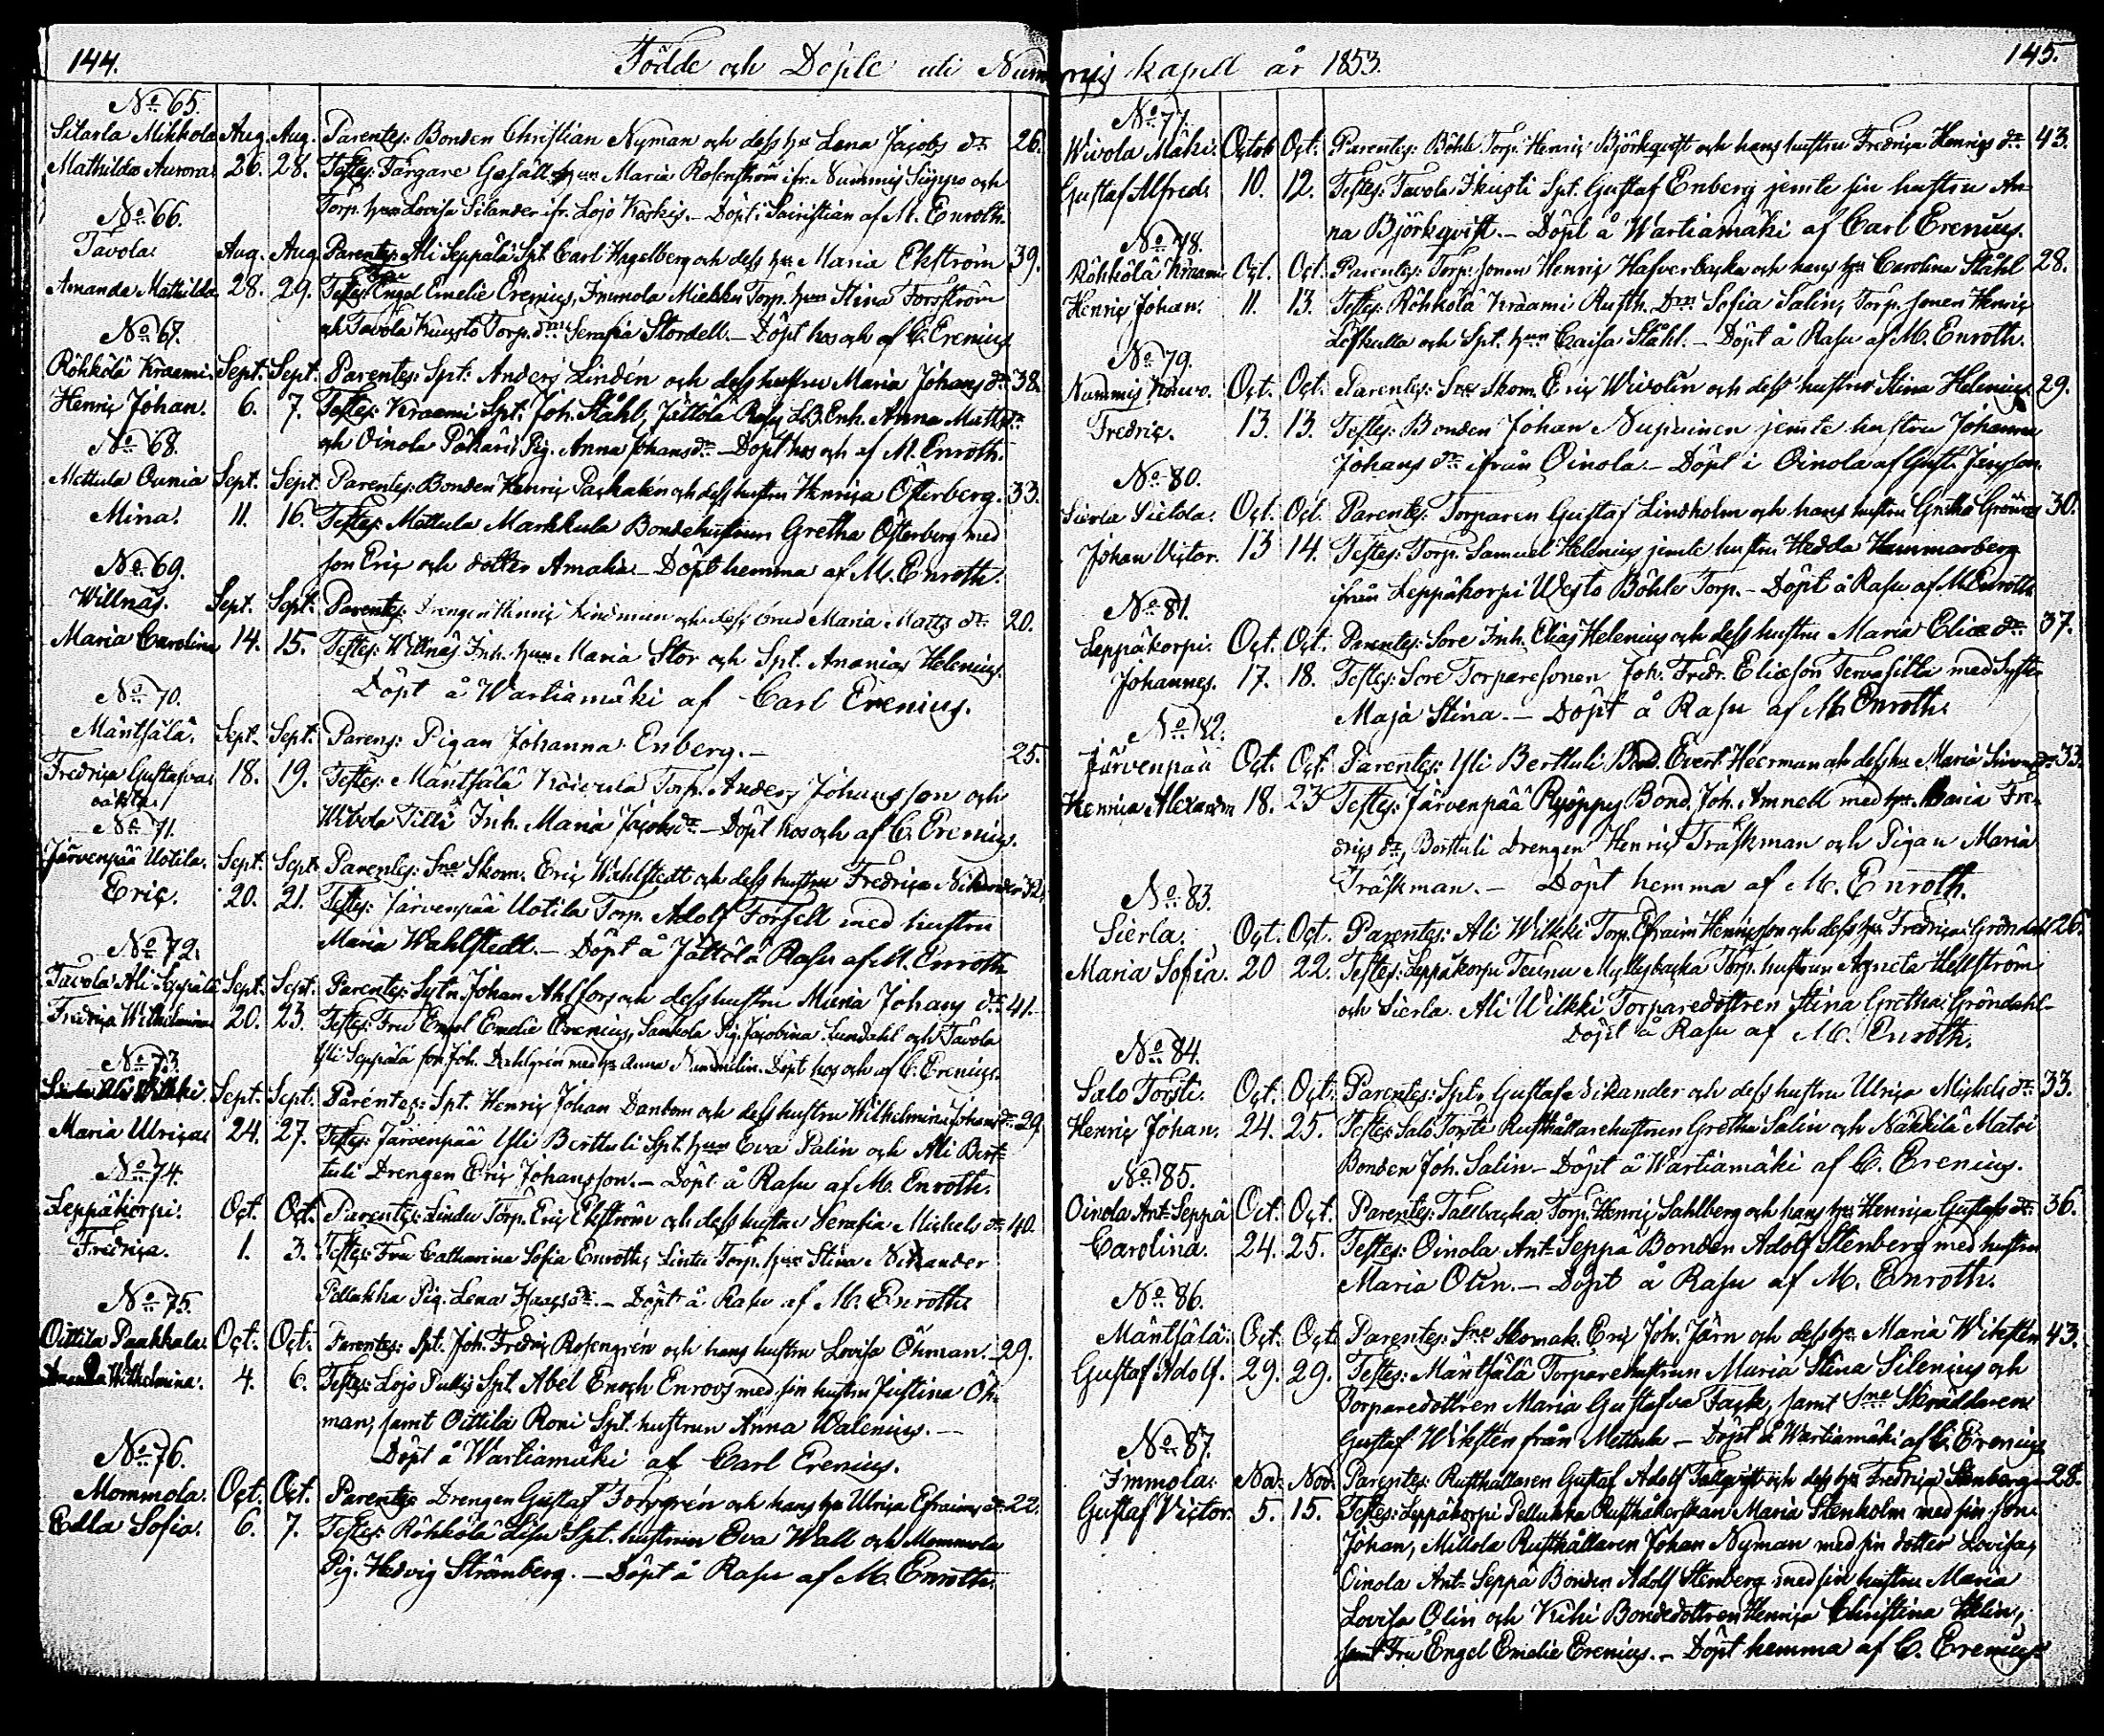 144.
Födde och Döpte uti Nummis kapell år 1853.
145.
No 65.
Sitarla Mikkola Aug. Aug. Parentes: Bonden Christian Nyman och dess hu Lena Jacobs dr 26.
Mathilda Aurora 26. 28. Testes: Färgare Gesäll hun Maria Rosenström ifr. Nummis Suppo och
Torp. hun Lovisa Silander ifr. Lojo Koskis. – Döpt i Sacristian af M. Enroth.
No 66.
Tavola. Aug. Aug. Parentes: Ali Seppälä Spt. Carl Hagelberg och dess hu Maria Ekström 39.
Amanda Mathilda 28. 29. Testes: Fru Engel Emelie Erenius, Immola Miekka Torp. hun Stina Forsström
och Tavola Kuusto Torp. drn Serafia Stordell. – Döpt hos och af C. Erenius
No 67.
Röhkölä Kraami. Sept. Sept. Parentes: Spt. Anders Lindén och dess hustru Maria Johans dr 38.
Henric Johan. 6. 7. Testes: Kraami Spt. Joh. Ståhl, Jättölä Rasu Enk. Anna Matts dr
och Oinola Pig. Anna Johansdr – Döpt hos och af M. Enroth.
No 68.
Mettula Ounia Sept. Sept. Parentes: Bonden Henric Packalén och dess hustru Henrica Österberg. 33.
Mina. 11. 16. Testes: Mettula Markkula Bondehustrun Gretha Österberg med
son Eric och dotter Amalia – Döpt hemma af M. Enroth.
No 69.
Willnäs. Sept. Sept. Parentes: Drengen Henric Lindman och dess brud Maria Matts dr 20.
Maria Carolina 14. 15. Testes: Willnäs Inh. hun Maria Stor och Spt. Ananias Helenius.
Döpt å Wartiamäki af Carl Erenius.
No 70.
Mäntsälä. Sept. Sept. Parens: Pigan Johanna Enberg. – 25.
Fredrica Gustafva 18. 19. Testes: Mäntsälä Torp. Anders Johansson och
oäkta.
Wivola Titti Inh. Maria Jacobsdr – Döpt hos och af C. Erenius.
No 71.
Järvenpää Uotila. Sept. Sept. Parentes: Sne Skom. Eric Wahlstedt och dess hustru Fredrica Nikander 32.
Eric. 20. 21. Testes: Järvenpää Uotila Torp. Adolf Forsell med hustru
Maria Wahlstedt. – Döpt å Jättölä Rasu af M. Enroth
No 72.
Tavola Ali Seppälä Sept. Sept. Parentes: Sytn. Johan Ahlfors och dess hustru Maria Johans dr 41.
Fredrica Wilhelmina 20. 23. Testes: Fru Engel Emelie Erenius, Saukola Pig. Jacobina Lundahl och Tavola
Yli Seppälä son Joh. Dahlgrén med hu Anna Nummelin. Döpt hos och af C. Erenius.
No 73.
Sierla Ali Wilkki Sept. Sept. Parentes: Spt. Henric Johan Danbom och dess hustru Wilhelmina Johans dr 29.
Maria Ulrica. 24. 27. Testes: Järvenpää Yli Berttuli Spt. hun Eva Palin och Ali Bert-
tuli Drengen Eric Johansson. – Döpt å Rasu af M. Enroth.
No 74.
Leppäkorpi. Oct. Oct. Parentes: Lindu Torp. Eric Ekström och dess hustru Serafia Michels dr 40.
Fredrica. 1. 3. Testes: Fru Catharina Sofia Enroth, Lintu Torp. hun Stina Nikander
Pellukka Pig. Lena Isacsdr – Döpt å Rasu af M. Enroth.
No 75.
Oittila Paakkala. Oct. Oct. Parentes: Spt. Joh. Fredric Rosengrén och hans hustru Lovisa Öhman. – 29.
Amanda Wilhelmina. 4. 6. Testes: Lojo Pullis Spt. Abel Enoch Enroos med sin hustru Justina Öh-
man, samt Oittila Roni Spt. hustrun Anna Walenius. –
Döpt å Wartiamäki af Carl Erenius.
No 76.
Mommola. Oct. Oct. Parentes: Drengen Gustaf Forsgrén och hans hu Ulrica Efraims dr 22.
Edla Sofia. 6. 7. Testes: Röhkölä Lisu Spt. hustrun Eva Wall och Mommola
Pig. Hedvig Strömberg. – Döpt å Rasu af M. Enroth.
No 77.
Wivola Mäki. Octob. Oct. Parentes: Böhle Torp. Henric Björkqvist och hans hustru Fredrica Henrics dr 43.
Gustaf Alfred. 10. 12. Testes: Tavola Skusti Spt. Gustaf Enberg jemte sin hustru An-
na Björkqvist. – Döpt å Wartiamäki af Carl Erenius.
No 78.
Röhkölä Kraami Oct. Oct. Parentes: Torp. sonen Henric Hafverbacka och hans hu Carolina Ståhl 28.
Henric Johan. 11. 13. Testes: Röhkölä Kraami Rusth. Drn Sofia Salin, Torp. sonen Henric
Löfkulla och Spt. hun Caisa Ståhl. – Döpt å Rasu af M. Enroth.
No 79.
Nummis Kouvo. Oct. Oct. Parentes: Sne Skom. Eric Wivolin och dess hustru Stina Helenius 29.
Fredric. 13. 13. Testes: Bonden Johan Nupuinen jemte hustru Johanna
Johans dr ifrån Oinola – Döpt i Oinola af Gust.
No 80.
Sierla Sietola. Oct. Oct. Parentes: Torparen Gustaf Lindholm och hans hustru Gretha Grönroos 30.
Johan Victor. 13 14. Testes: Torp. Samuel Helenius jemte hustru Hedda Hammarberg
ifrån Leppäkorpi Westo Böhle Torp. – Döpt å Rasu af M. Enroth
No 81.
Leppäkorpi. Oct. Oct. Parentes: Sore Inh. Elias Helenius och dess hustru Maria Eliæ dr 37.
Johannes. 17. 18. Testes: Sore Torparesonen Joh. Fredr. Eliæson Tervasilta med Syster
Maja Stina. – Döpt å Rasu af M. Enroth.
No 82.
Järvenpää Oct. Oct. Parentes: Yli Berttuli Bond. Evert Heerman och dess hu Maria Simons dr 33.
Henrica Alexandra 18. 23 Testes: Järvenpää Ryöppy Bond. Joh. Amnell med hu Maria Fre-
drics dr, Berttuli drengen Henric Träskman och Pigan Maria
Träskman. – Döpt hemma af M. Enroth.
No 83.
Sierla. Oct. Oct. Parentes: Ali Wilkki Torp. Efraim Henricsson och dess hu Fredrica Gröndahl 26.
Maria Sofia. 20 22. Testes: Leppäkorpi Teupu Myllybacka Torp. hustrun Agneta Hellström
och Sierla Ali Wilkki Torparedottren Stina Gretha Gröndahl –
Döpt å Rasu af M. Enroth.
No 84.
Salo Torsti. Oct. Oct. Parentes: Spt. Gustaf Nikander och dess hustru Ulrica Michels dr 33.
Henric Johan. 24. 25. Testes: Salo Torsti Rusthållarehustrun Gretha Salin och Näkkilä Matvi
Bonden Joh. Salin – Döpt å Wartiamäki af C. Erenius.
No 85.
Oinola Ant-Seppä Oct. Oct. Parentes: Tallbacka Torp. Henric Sahlberg och hans hu Henrica Gustafs dr 36.
Carolina. 24. 25. Testes: Oinola Ant-Seppä Bonden Adolf Stenberg med hustru
Maria Olin. – Döpt å Rasu af M. Enroth.
No 86.
Mäntsälä: Oct. Oct. Parentes: Sne Skomak. Eric Joh. Järn och dess hu Maria Wiksten 43.
Gustaf Adolf. 29. 29. Testes: Mäntsälä Torparehustrun Maria Stina Silenius och
Torparedottren Maria Gustafva Fack, samt Sne Skräddaren
Gustaf Wiksten från Mettula – Döpt å Wartiamäki af C. Erenius
No 87.
Immola. Nov. Nov. Parentes: Rusthållaren Gustaf Adolf Tallqvist och dess hu Fredrica Stenberg 28.
Gustaf Victor. 5. 15. Testes: Leppäkorpi Pellukka Rusthållerskan Maria Stenholm med sin son
Johan, Millola Rusthållaren Johan Nyman med sin dotter Lovisa,
Oinola Ant-Seppä Bonden Adolf Stenberg med sin hustru Maria
Lovisa Olin och Kihi Bondedottren Henrica Christina Helin,
samt Fru Engel Emelie Erenius. – Döpt hemma af C. Erenius